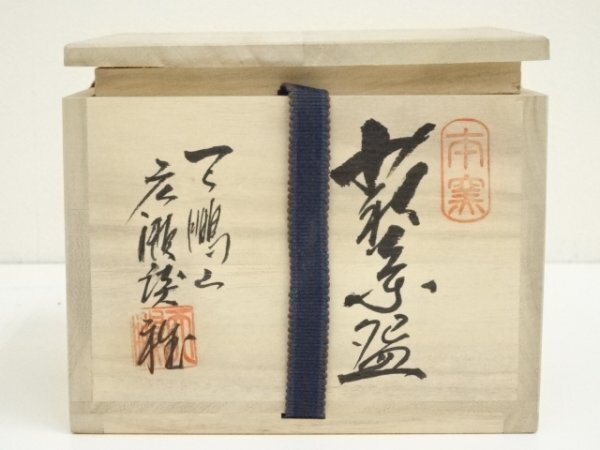 本窯
萩茶盌
天鵬山
広瀬淡雅